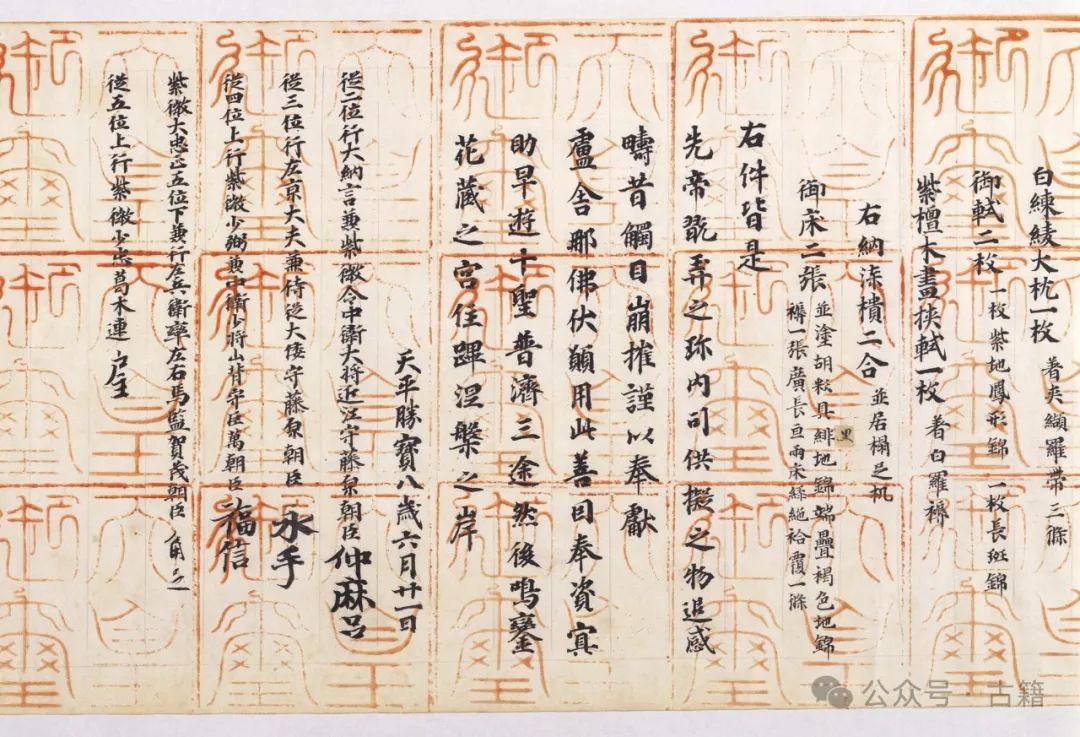 白練綾大枕一枚 著夾纈羅帶三條
御軾二枚 一枚紫地鳳形錦 一枚長斑錦
紫檀木畫挾軾一枚 著白羅褥
右納漆樻二合 並居榻足机
御床二張 並塗胡粉具緋地錦端疊褐色地錦
褥一張廣長亘兩床緑絁袷覆一條
右件皆是
先帝翫弄之珍内司供擬之物追感
疇昔觸目崩摧謹以奉獻
盧舍那佛伏願用此善因奉資冥
助早遊十聖普濟三途然後鳴鑾
花藏之宮住蹕涅槃之岸
天平勝寶八歳六月廿一日
從二位行大納言兼紫微令中衛大將近江守藤原朝臣 仲麻呂
從三位行左京大夫兼侍從大倭守藤原朝臣 永手
從四位上行紫微少弼兼中衛少將山背守巨萬朝臣 福信
紫微大忠正五位下兼行左兵衛率左右馬監賀茂朝臣 角足
從五位上行紫微少忠葛木連 戸主
天皇御璽
公众号 · 古籍